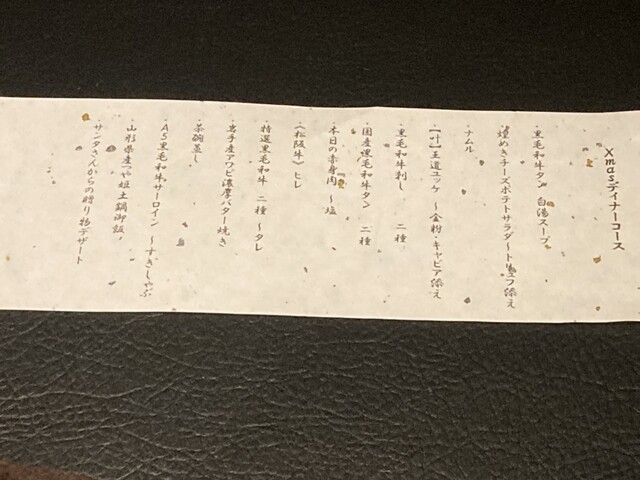 Xmasディナーコース
・黒毛和牛タン 白湯スープ
・煌めきチーズポテトサラダ〜トリュフ添え
・ナムル
・【叶】王道ユッケ 〜金粉・キャビア添え
・黒毛和牛刺し 二種
・国産黒毛和牛タン 二種
・本日の赤身肉 〜塩
・《松阪牛》ヒレ
・特選黒毛和牛 二種 〜タレ
・岩手産アワビ濃厚バター焼き
・茶碗蒸し
・A5黒毛和牛サーロイン 〜すきしゃぶ
・山形県産つや姫土鍋御飯
・サンタさんからの贈り物デザート